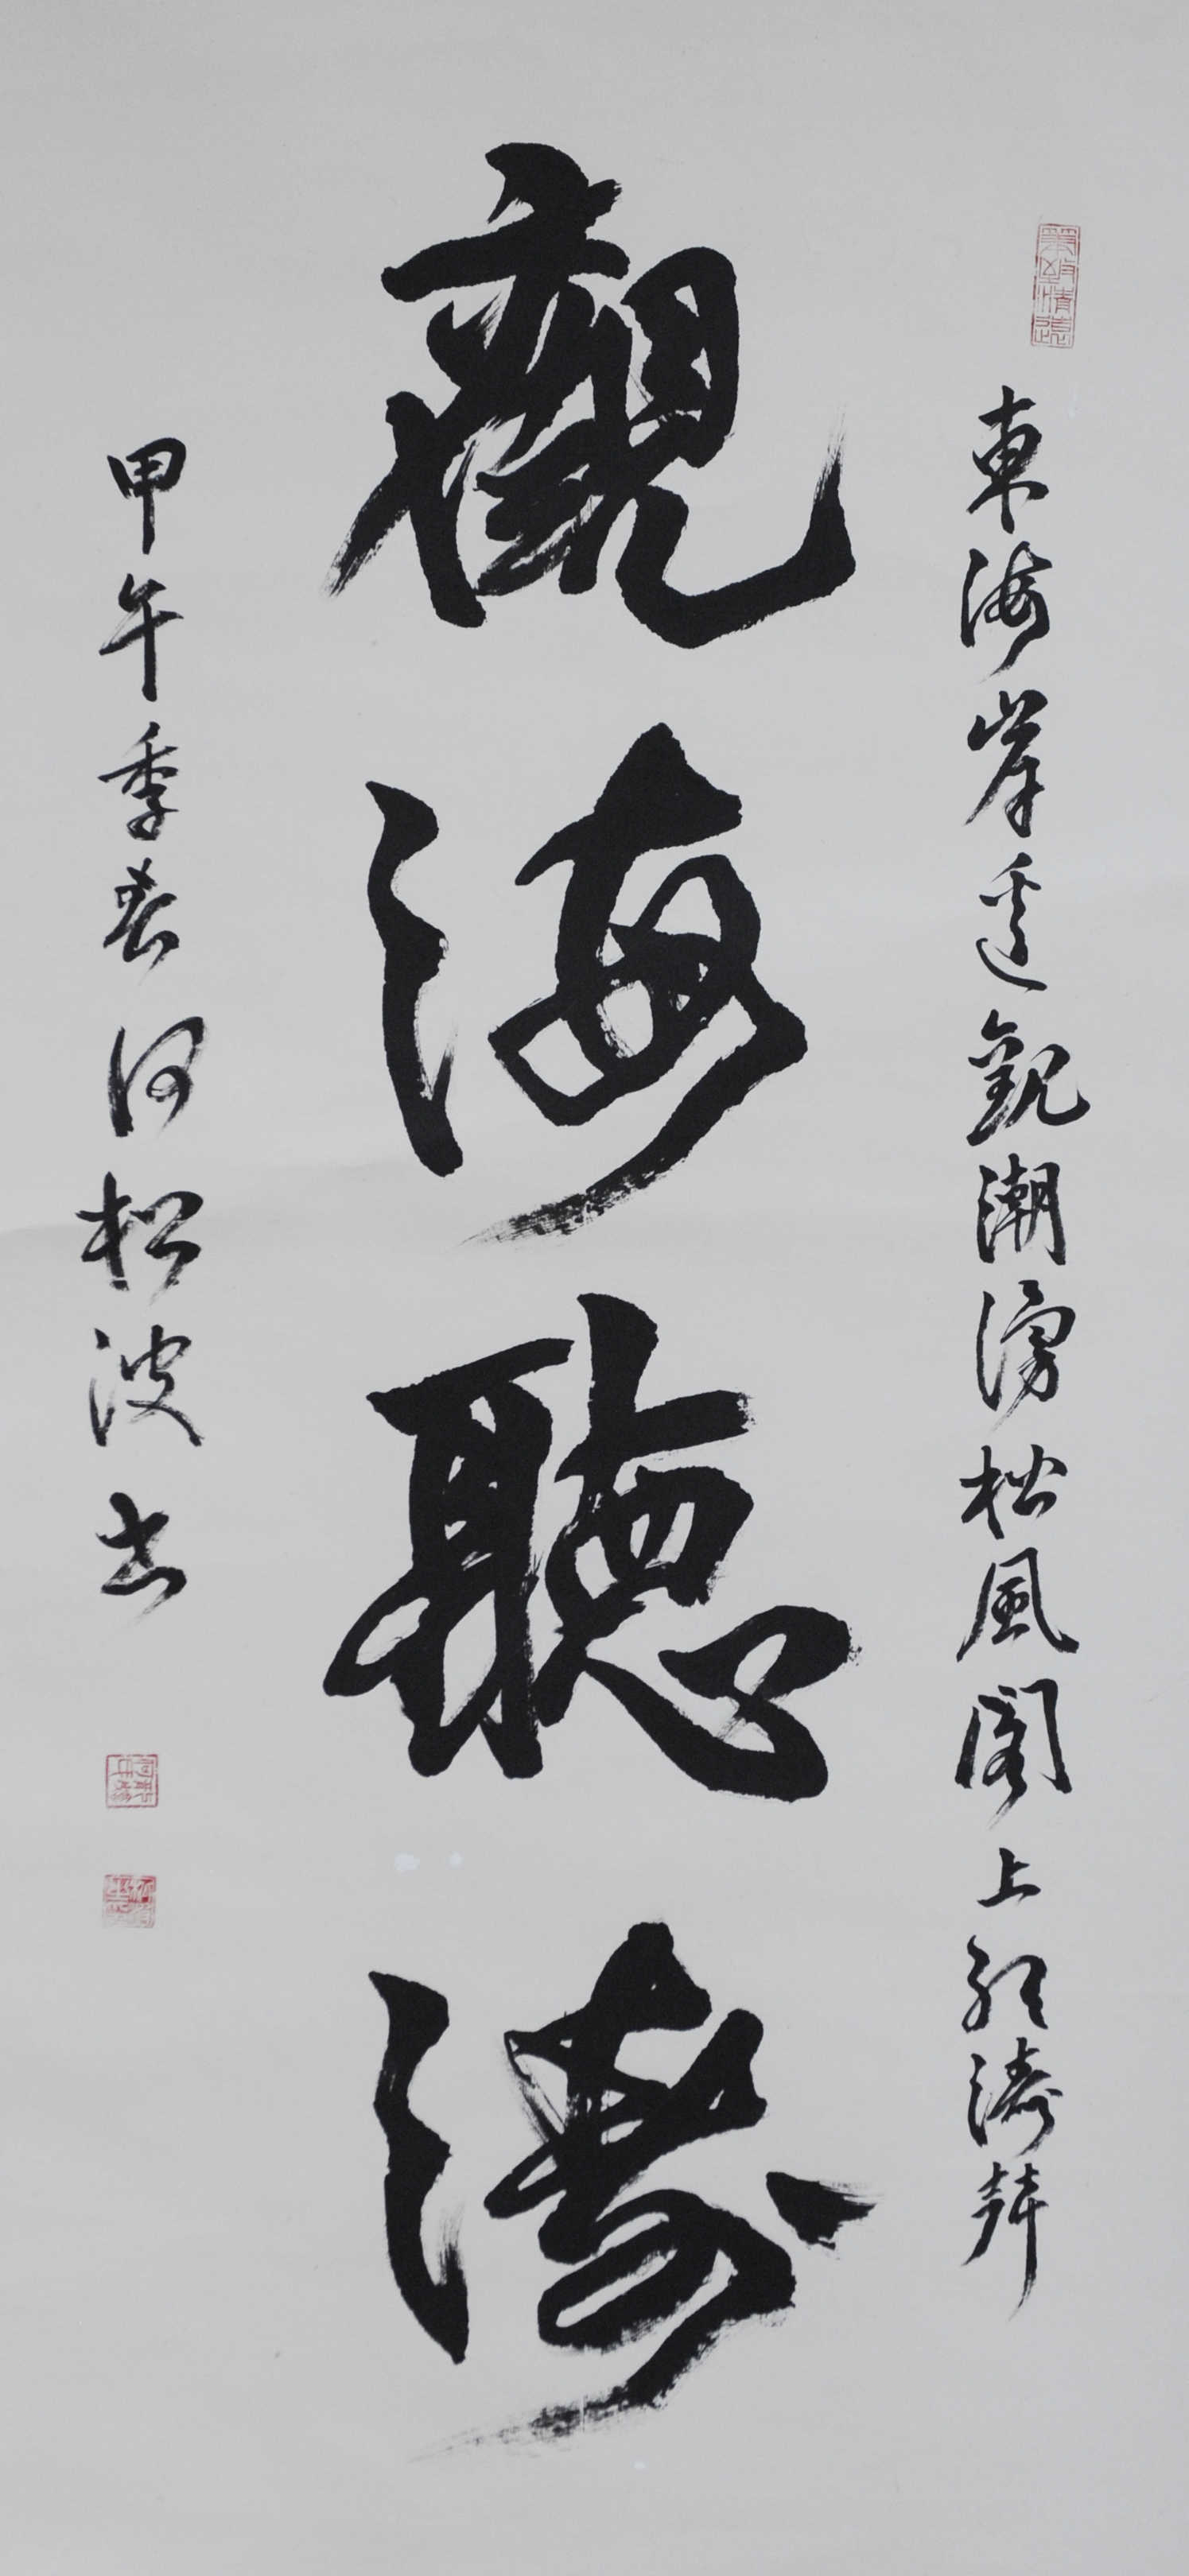 東海岸邊觀潮湧松風閣上聽濤聲
觀海聽濤
甲午季春何松波書